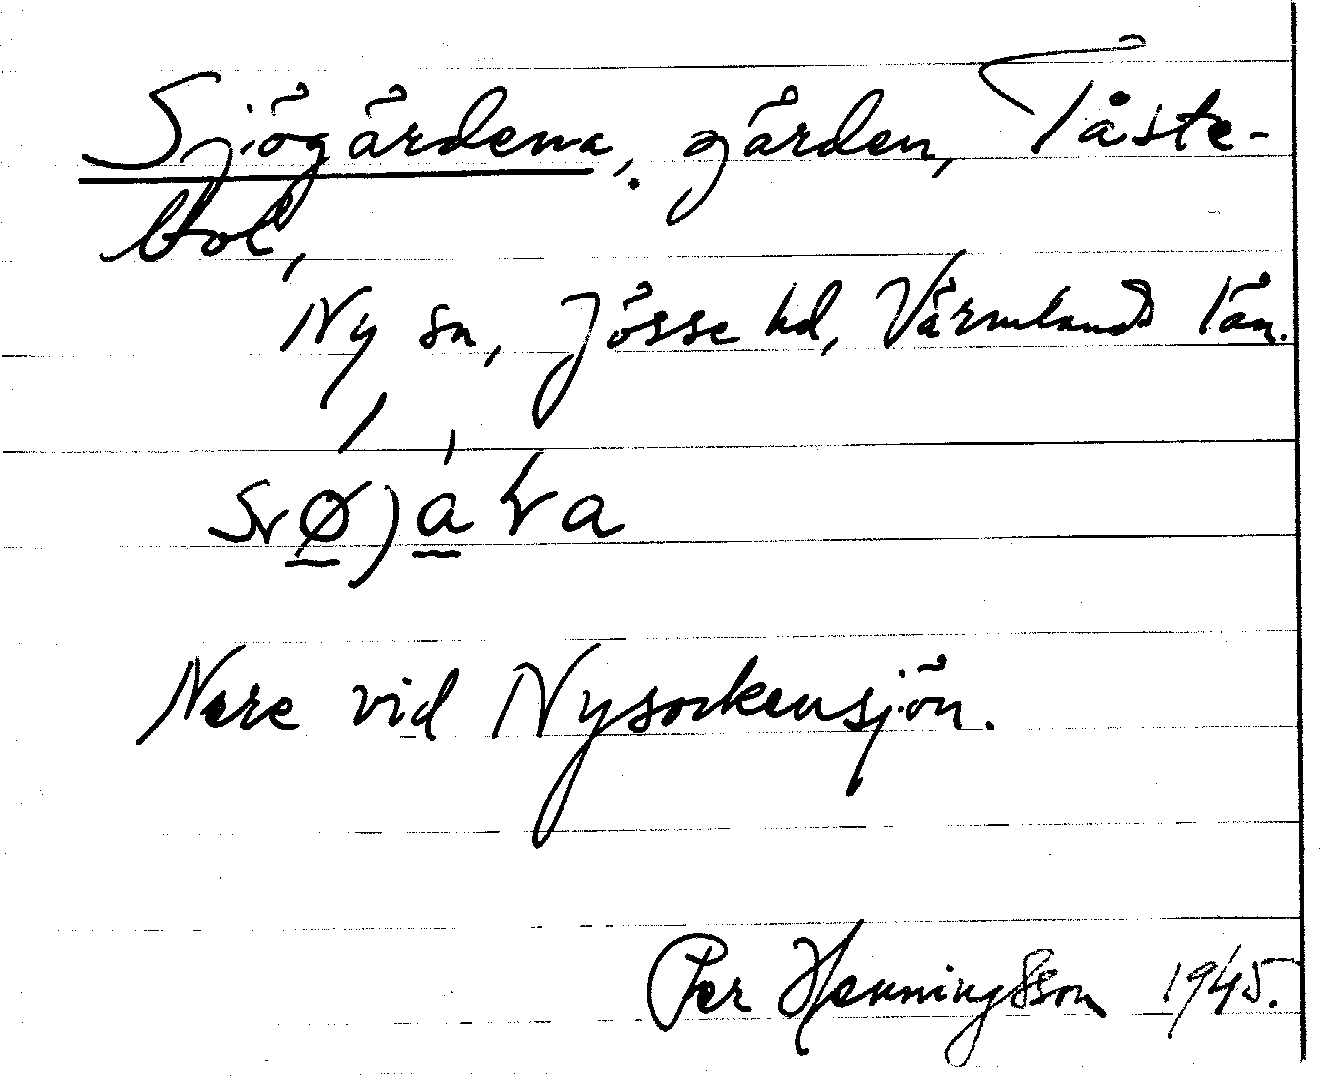 Sjögärdena, gärden, Tåste-
bol,
Ny sn, Jösse hd, Värmlands län.
Nere vid Nysockensjön.
Per Henningsson 1945.